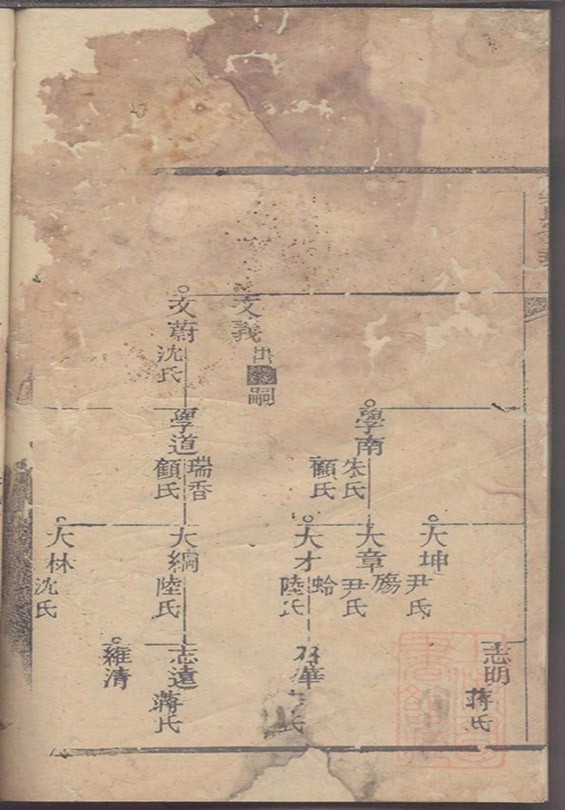 文義
出
嗣
文蔚
沈氏
學南
朱氏
顧氏
學道
瑞香
顧氏
大坤
尹氏
大章
殤
尹氏
大才
蛉
陸氏
大綱
陸氏
大林
沈氏
志明
蔣氏
華
氏
志遠
蔣氏
維清